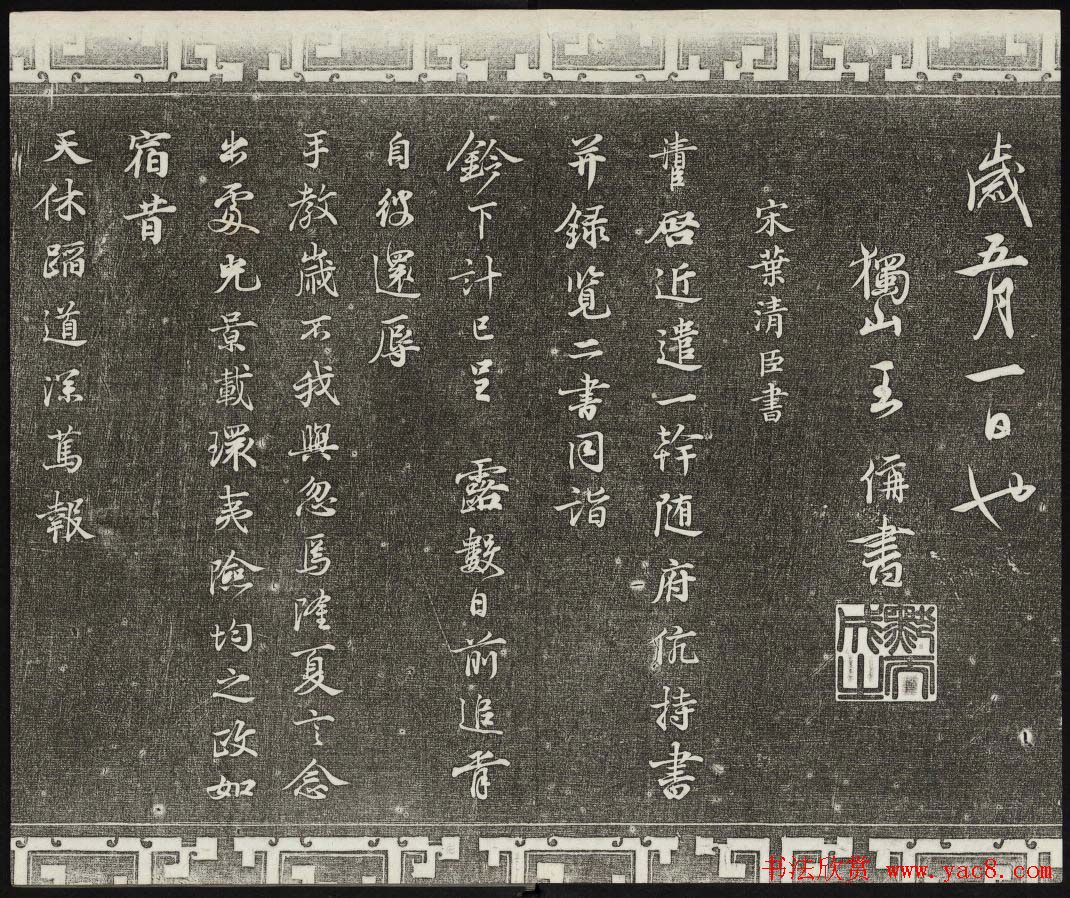 歲五月一日也
獨山王偁書
宋葉清臣書
啓近遣一幹随府伉持書
并録覽二書同詣
鈴下計已呈 露數日前追胥
自彼還辱
手教歲不我與忽焉隆夏言念
出處光景載環夷險均之政如
宿昔
天休蹈道深篤報
书法欣赏 www.yac8.com